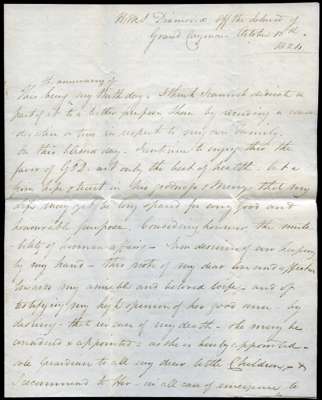 HMS Diamond off the Island of
Grand Cayman October 10th
1824
The anniversary of
This being my Birthday. I think I cannot dedicate a
part of it to a better purpose than by recording a
line or two in respect to my own Family.
On this blessed day I continue to enjoy thro the
favor of God not only the best of health but a
firm hope & trust in his goodness & Mercy that my
life may yet be long spared for every good and
honourable purpose. Considering however the muta
bility of human affairs I am desirous of
by my hand this of my dear love and affection
towards my amiable and beloved wife and of
testifying my high opinion of her good sense by
desiring that in case of my death she may be
considered & appointed as she is hereby appointed
sole Guardian to all my dear little Children &
I recommend to Her in all case of emergence to